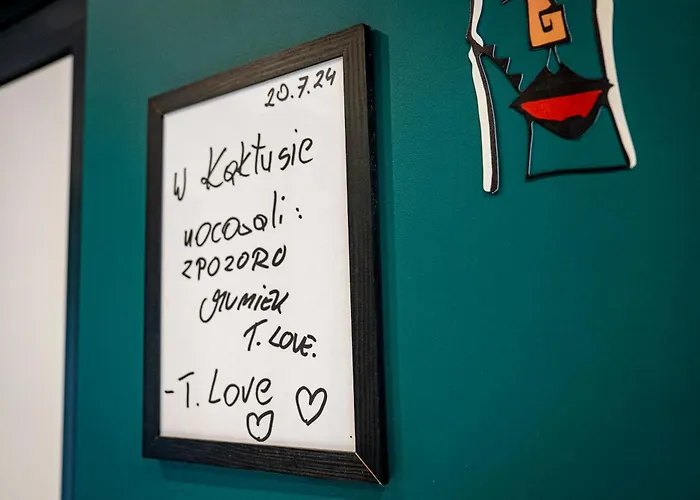 20.7.24
W Kaktusie
nocowali:
ZPOZORO
MUMIEK
T. LOVE.
- T. LOVE